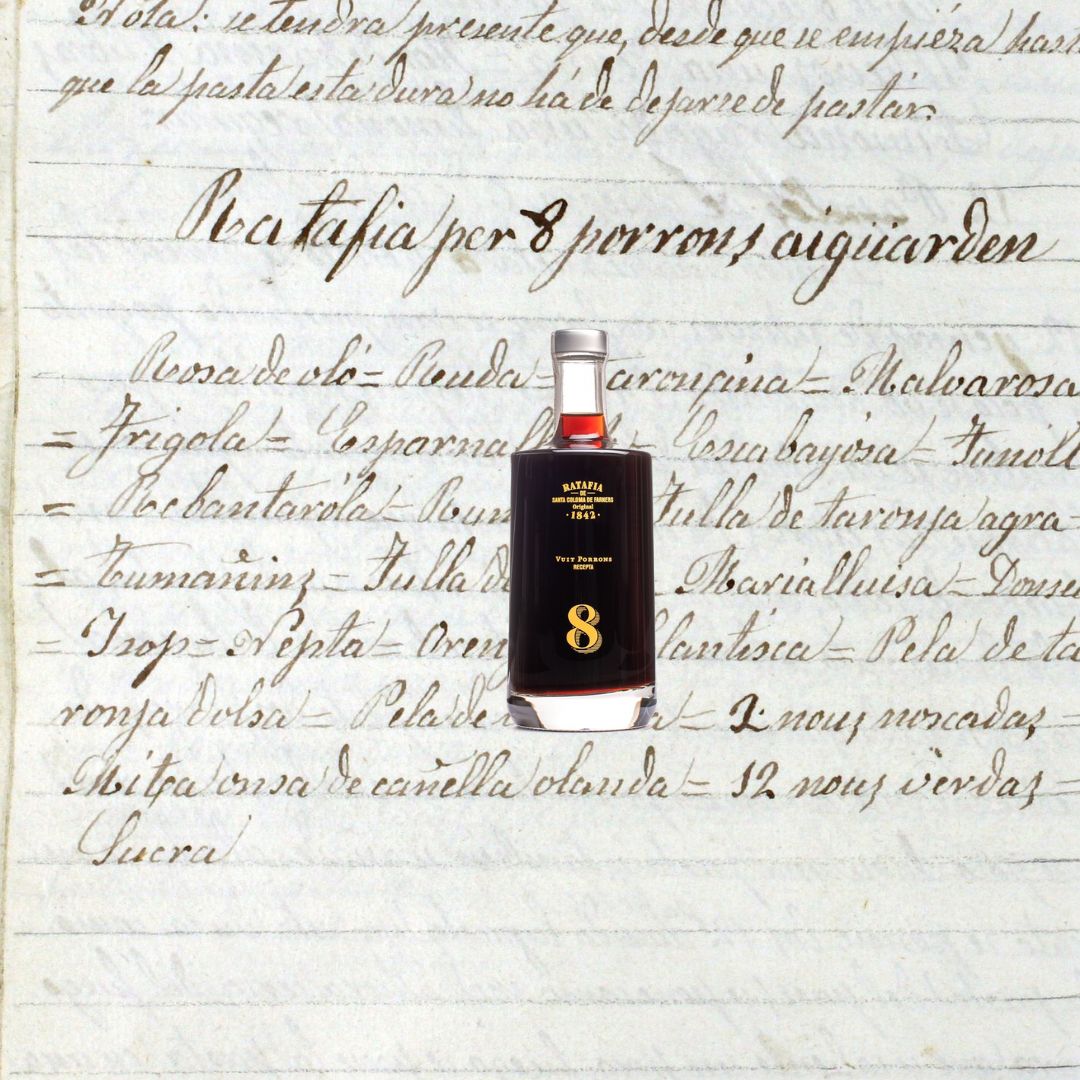 Nota: se tendra presente que, desde que se empieza hast
que la pasta está dura no há de dejarse de pastár.
Ratafia per 8 porrons aigüarden
Rosa de oló = Ruda = Tarongina = Malvarosa
= Frigola = Esparnallach = Escabayosa = Funoll
= Rebantaróla = Rum Fulla de taronja agra =
= Tumañins = Fulla de = Marialluisa = Donse
= Isop = Nepta = Oreng llantisca = Pela de ta
ronja dolsa = Pela de a = 2 nous noscadas =
Mitja onsa de cañella olanda = 12 nous verdas =
Sucra
RATAFIA
DE
SANTA COLOMA DE FARNERS
Original
·1842·
VUIT PORRONS
RECEPTA
8